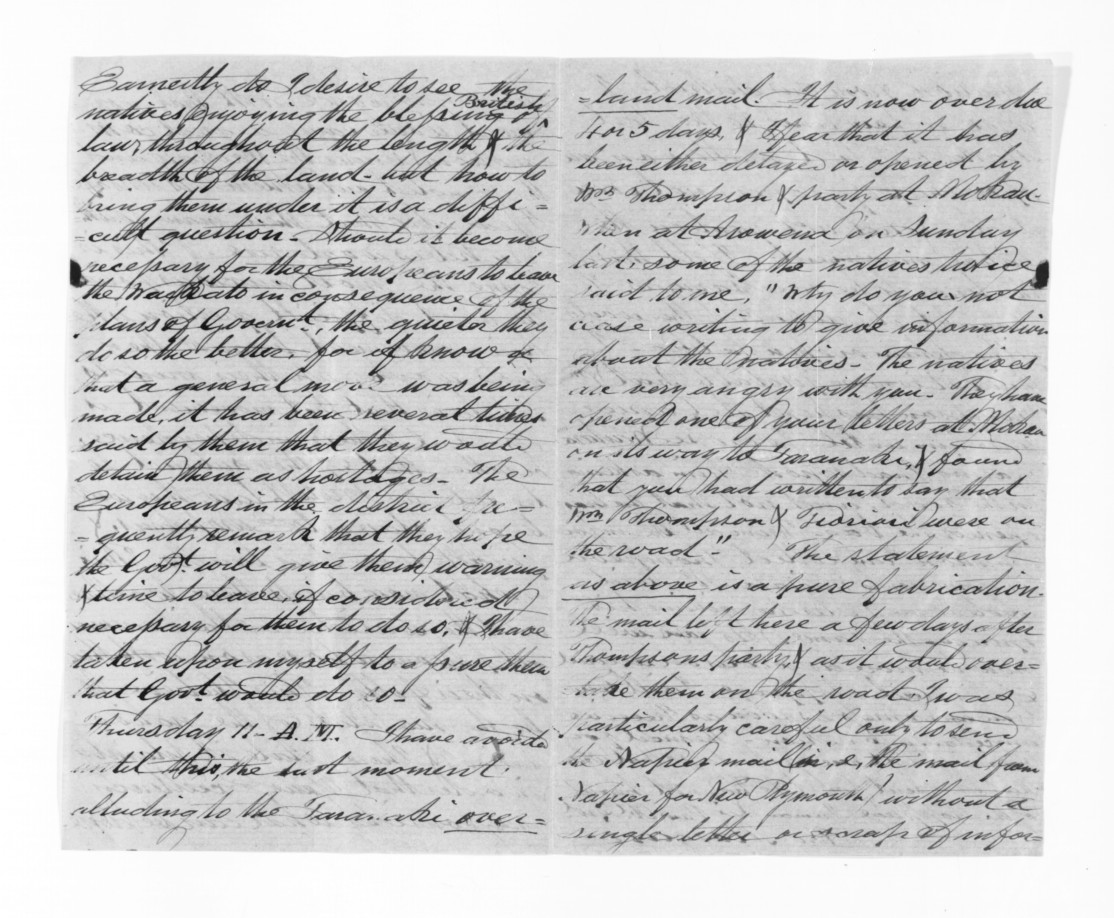 Earnestly do I desire to see the
natives enjoying the blessing of British
law, throughout the length & the
breadth of the land - but how to
bring them under it is a diffi=
=cult question - Should it become
necessary for the Europeans to leave
the Waikato in consequence of the
plans of Governt., the quieter they
do so the better, for if know
that a general move was being
made, it has been several times
said by them that they would
detain them as hostages - The
Europeans in the district fre=
=quently remark that they hope
the Govt. will give them warning
& time to leave, if considered
necessary for them to do so, & I have
taken upon myself to assure them
that Govt. would do so -
Thursday 11 - A.M. I have avoided
until this, the last moment
alluding to the Taranaki over=
=land mail. It is now over due
4 or 5 days, & I fear that it has
been either delayed or opened by
Wm Thompson & party at Mokau.
When at Arowena on Sunday
last, some of the natives
said to me, "Why do you not
cease writing to give information
about the natives - The natives
are very angry with you. They have
opened one of your letters at Mokau
on its way to Taranaki, & found
that you had written to say that
Wm Thompson & were on
the road" - The statement
as above is a pure fabrication.
The mail left here a few days after
Thompsons party, & as it would over=
=take them on the road I was
particularly careful only to send
the Napier mail in, i.e. the mail from
Napier for New Plymouth, without a
single letter or scrap of infor=